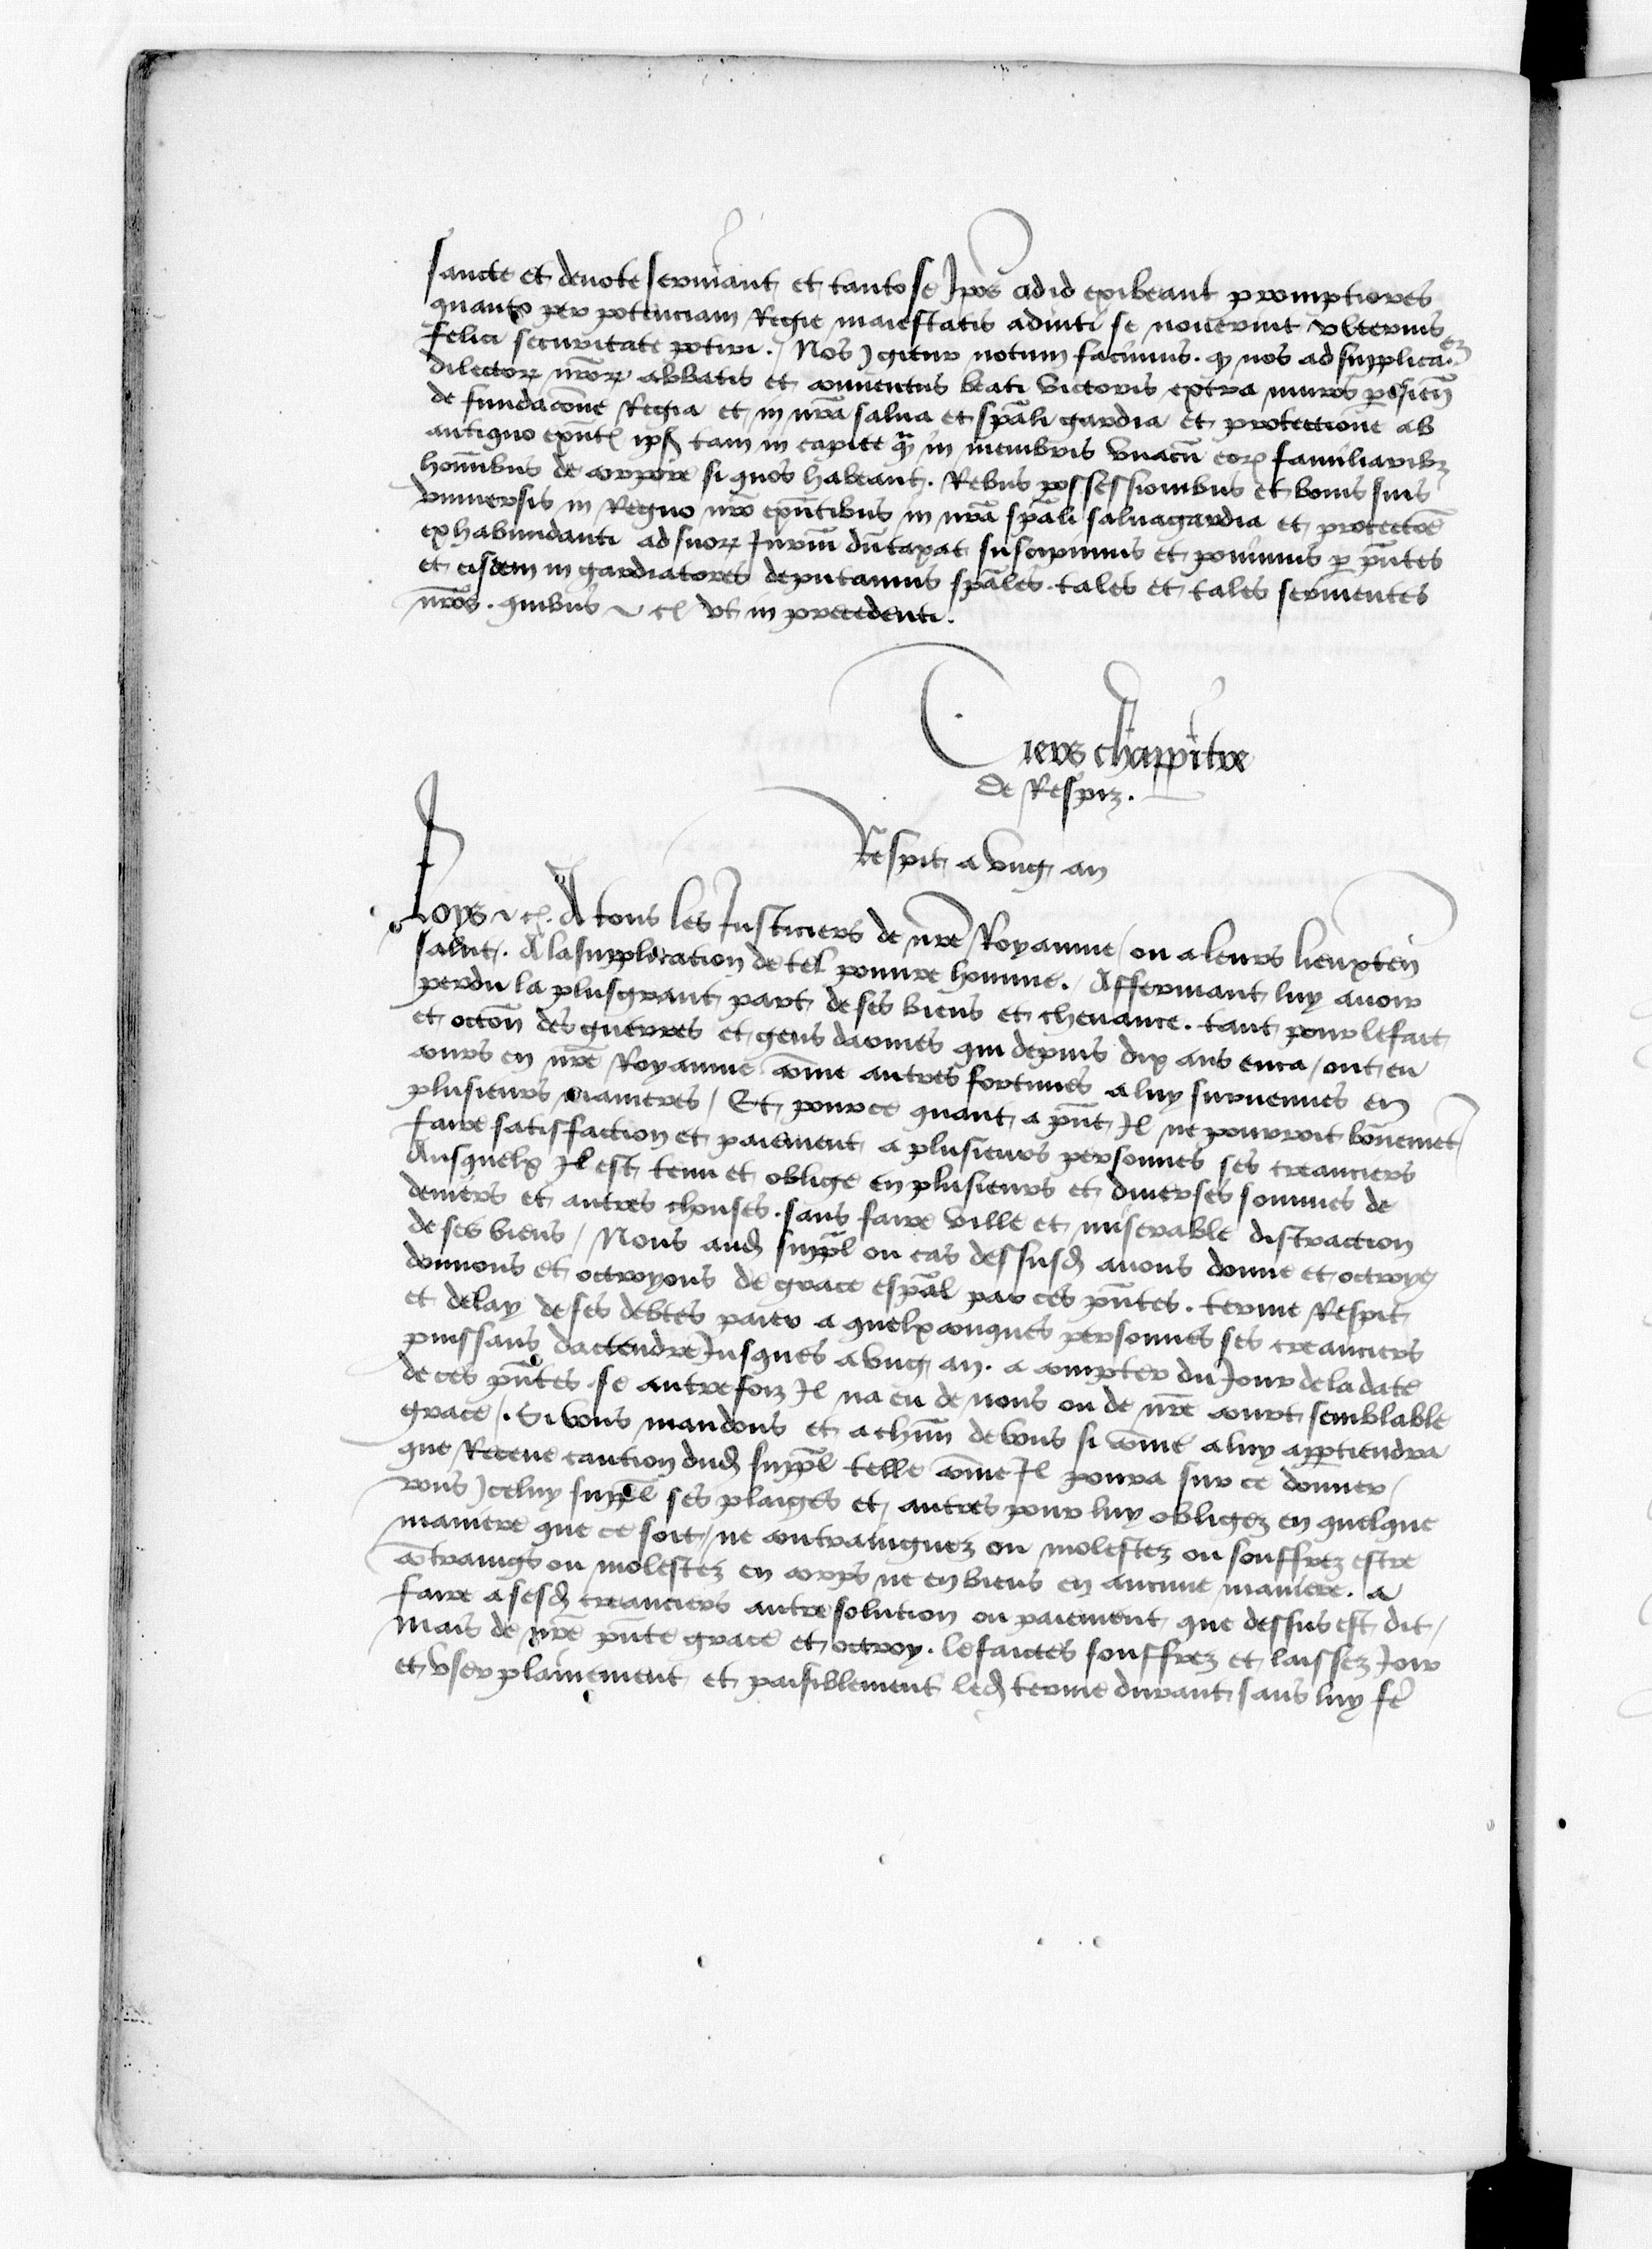 sancte et deuote seruiant et tanto se Ipos ad id exibeant promptiores
quanto per potenciam Regie maiestatis adiuti se nouerint vlterius
felici securitate potiri. Nos Igitur notum facimus. qp nos ad supplicacoem
dilectorꝝ nrorꝝ abbatis et conuentus beati Victoris extra muros parisien
de fundacone Regia et in nra salua et spali gardia et protectione ab
antiquo exnt ipos tam in capite qm in membris vnacu eorꝝ familiaribꝫ
homibus de corpore si quos habeant. Rebus possessionibus et bonis suis
vniuersis in Regno nro exntibus in nra spali saluagardia et protectoe
ex habundanti ad suorꝝ Iurium dutaxat suscipimus et ponimus p pntes
et eisdem in gardiatores deputamus spales. tales et tales seruientes
nros. quibus ⁊c vt in precedenti.
Tiers chappitre
de Respiz.
Respit a vng an
Loys ⁊c. A tous les Justiciers de nre Royaume / ou a leurs lieuxten
salut. A la supplication de tel poure homme. Affermant luy auoir
perdu la plusgrant part de ses biens et cheuance. tant pour le fait
et occon des guerres et gens darmes qui depuis dix ans enca / ont eu
cours en nre Royaume come autres fortunes a luy suruenues en
plusieurs manieres / Et pource quant a pnt Il ne pourroit bonemet
faire satisfaction et paiement a plusieurs personnes ses creanciers
Ausquelx Il est tenu et oblige en plusieurs et diuerses sommes de
deniers et autres choses. sans faire ville et miserable distraction
de ses biens / Nous aud suppl ou cas dessusd auons donne et octroye
donnons et octroyons de grace espal par ces pntes. terme Respit
et delay de ses debtes paier a quelxconques personnes ses creanciers
puissans dactendre Iusques a vng an. a compter du Jour de la date
de ces pntes. se autrefoiz Il na eu de nous ou de nre court semblable
grace. Si vous mandons et a chun de vous si come a luy appartiendra
que Receue caution dud suppl telle come Il pourra sur ce donner /
vous Iceluy suppl ses plaiges et autres pour luy obligez en quelque
maniere que ce soit / ne contraingnez ou molestez ou souffrez estre
contraings ou molestez en corps ne en biens en aucune maniere. a
faire a sesd creanciers autre solution ou paiement que dessus est dit /
Mais de nre pnte grace et octroy. le faictes souffrez et laissez Joir
et vser plainement et paisiblement led terme durant sans luy fe